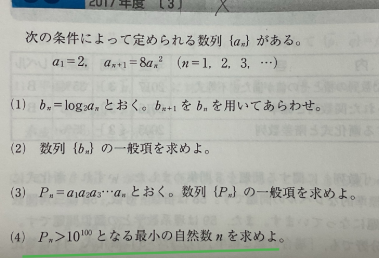 2017年度 〔3〕
次の条件によって定められる数列 {aₙ} がある。
a₁=2, aₙ₊₁=8aₙ² (n=1, 2, 3, …)
(1) bₙ=log₂aₙ とおく。bₙ₊₁ を bₙ を用いてあらわせ。
(2) 数列 {bₙ} の一般項を求めよ。
(3) Pₙ=a₁a₂a₃…aₙ とおく。数列 {Pₙ} の一般項を求めよ。
(4) Pₙ>10¹⁰⁰ となる最小の自然数 n を求めよ。